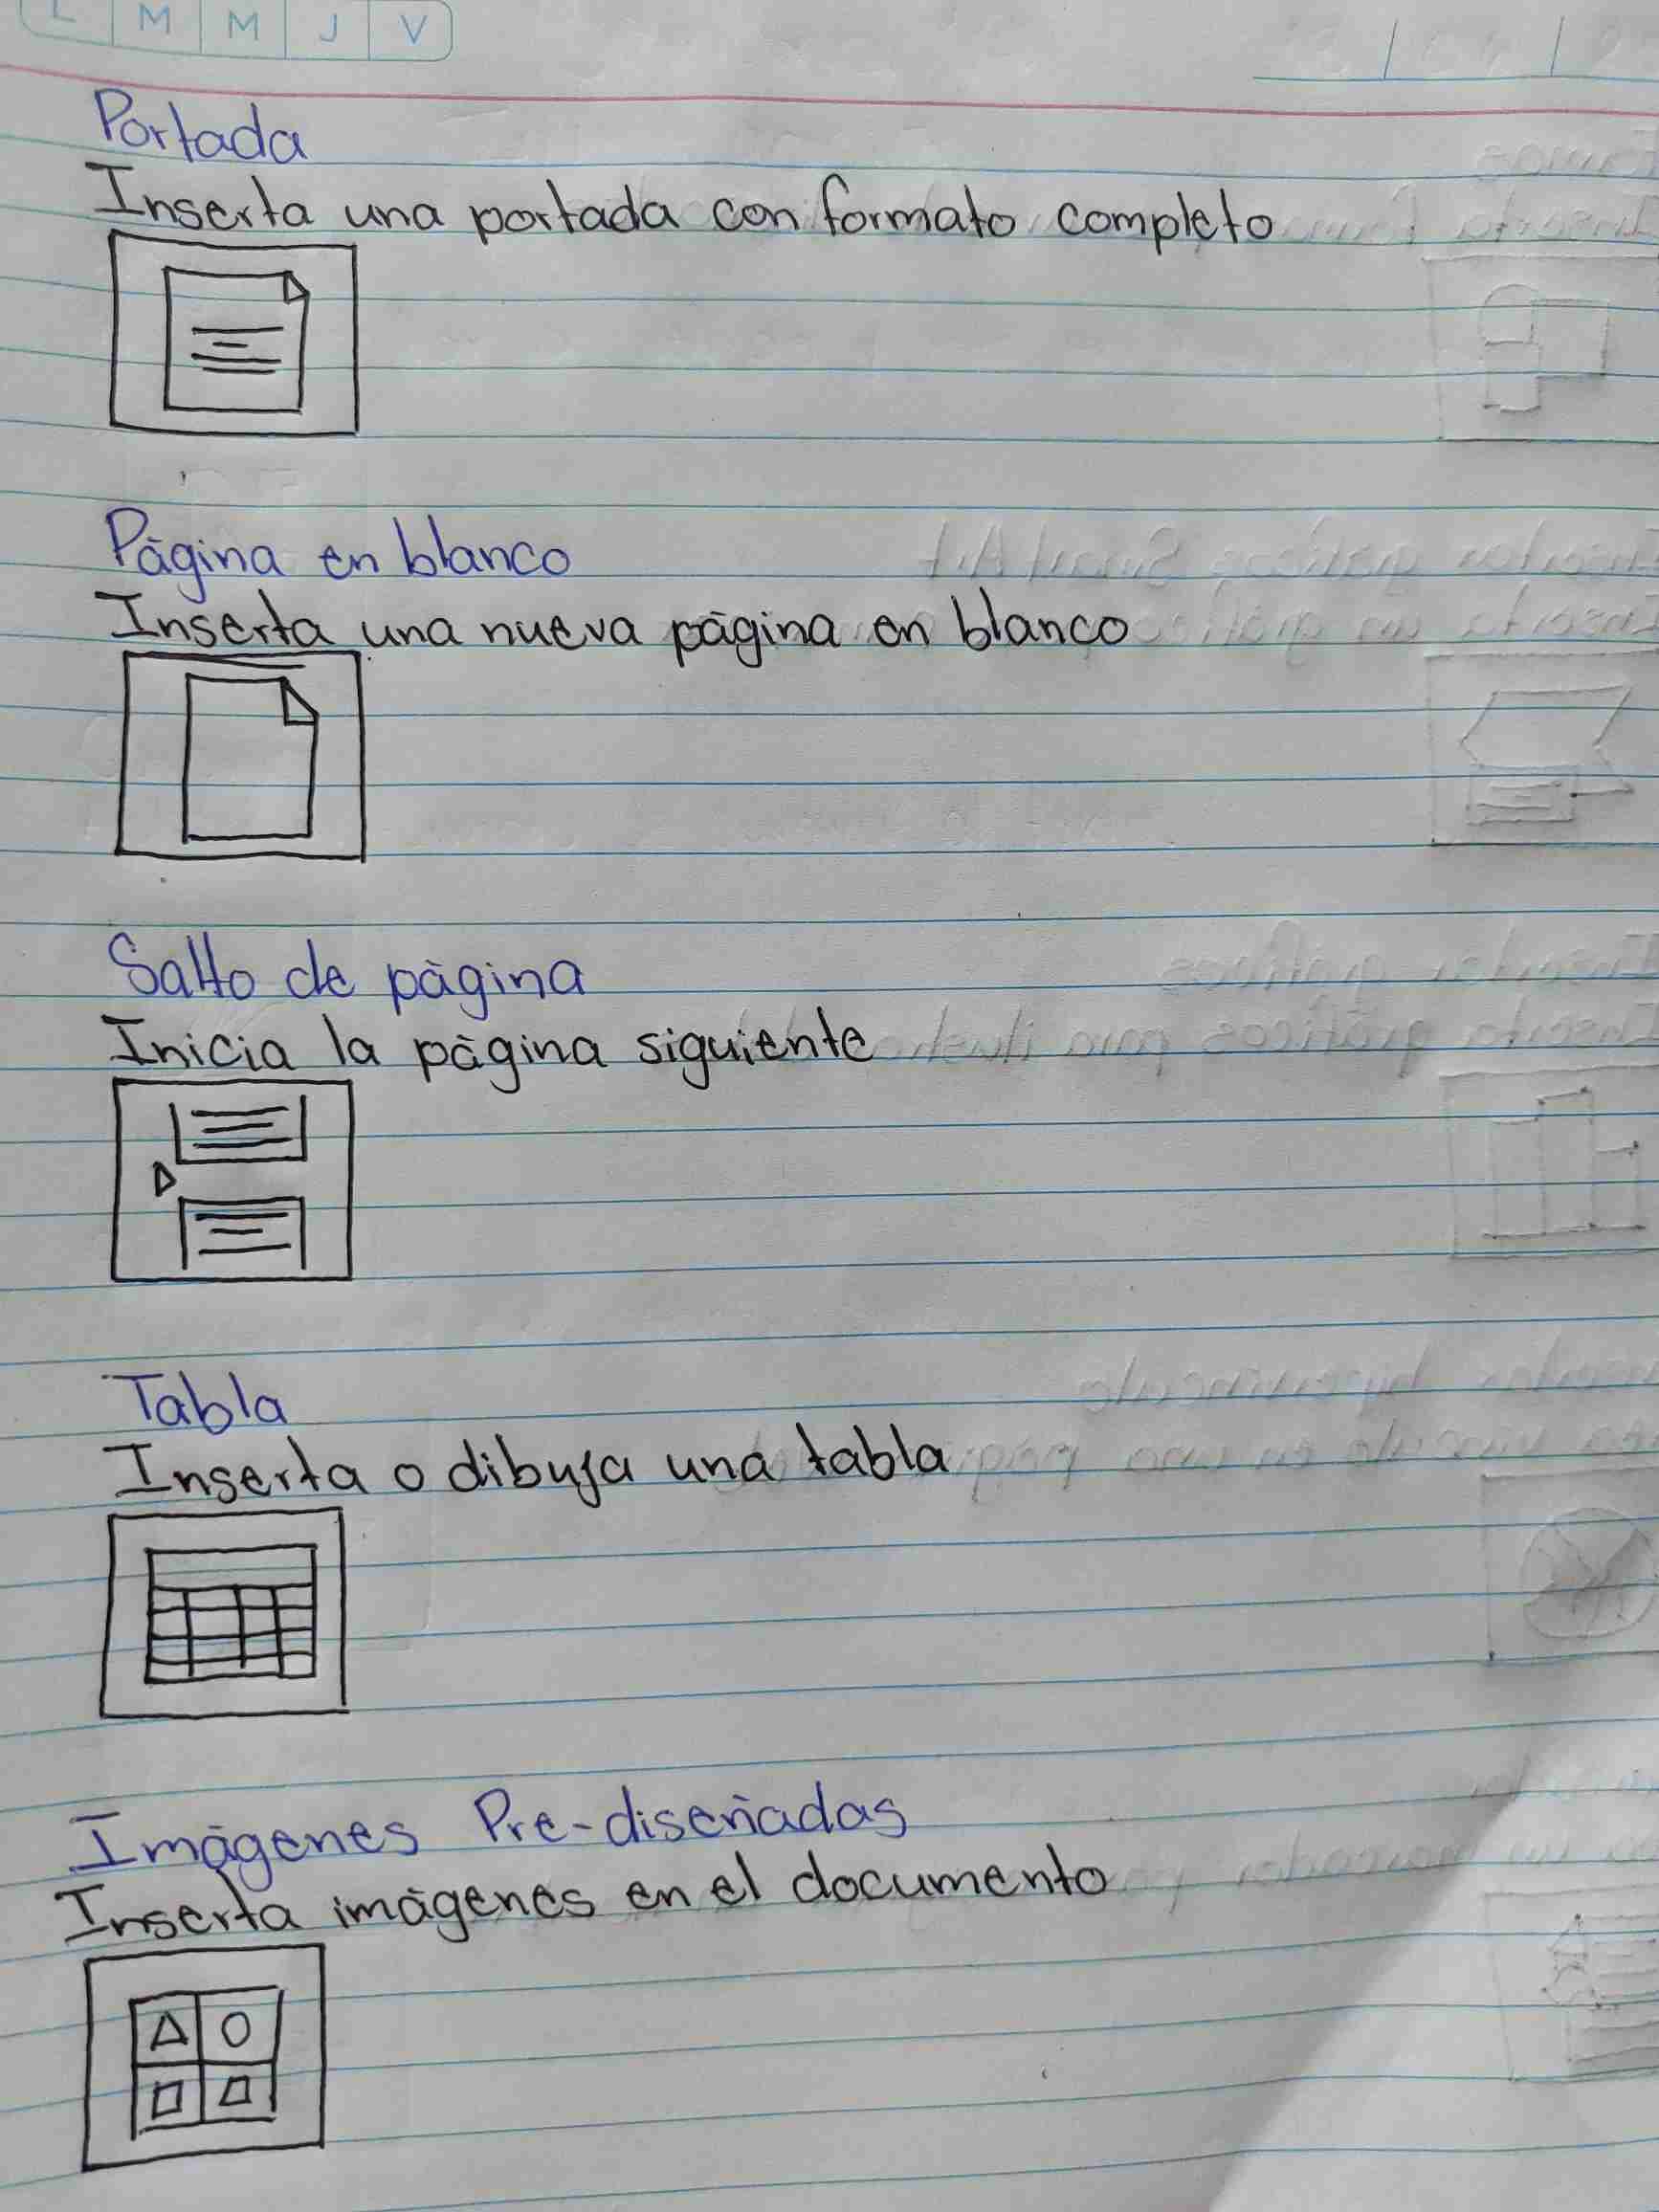 L M M J V
Portada
Inserta una portada con formato completo
Página en blanco
Inserta una nueva página en blanco
Salto de página
Inicia la página siguiente
Tabla
Inserta o dibuja una tabla
Imágenes Pre-diseñadas
Inserta imágenes en el documento